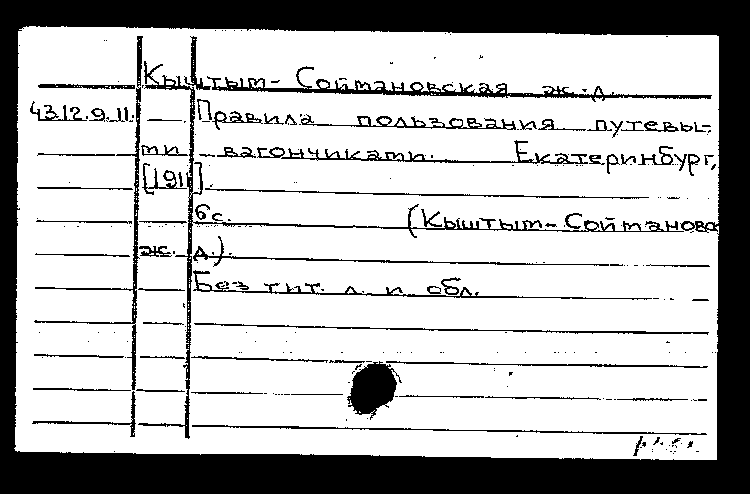 Кыштым-Соймановская ж.д.
43.12.9.11. Правила пользования путевы-
ми вагончиками. Екатеринбург,
[1911].
6с. (Кыштым-Сойманова
ж. д.).
Без тит. л. и обл.